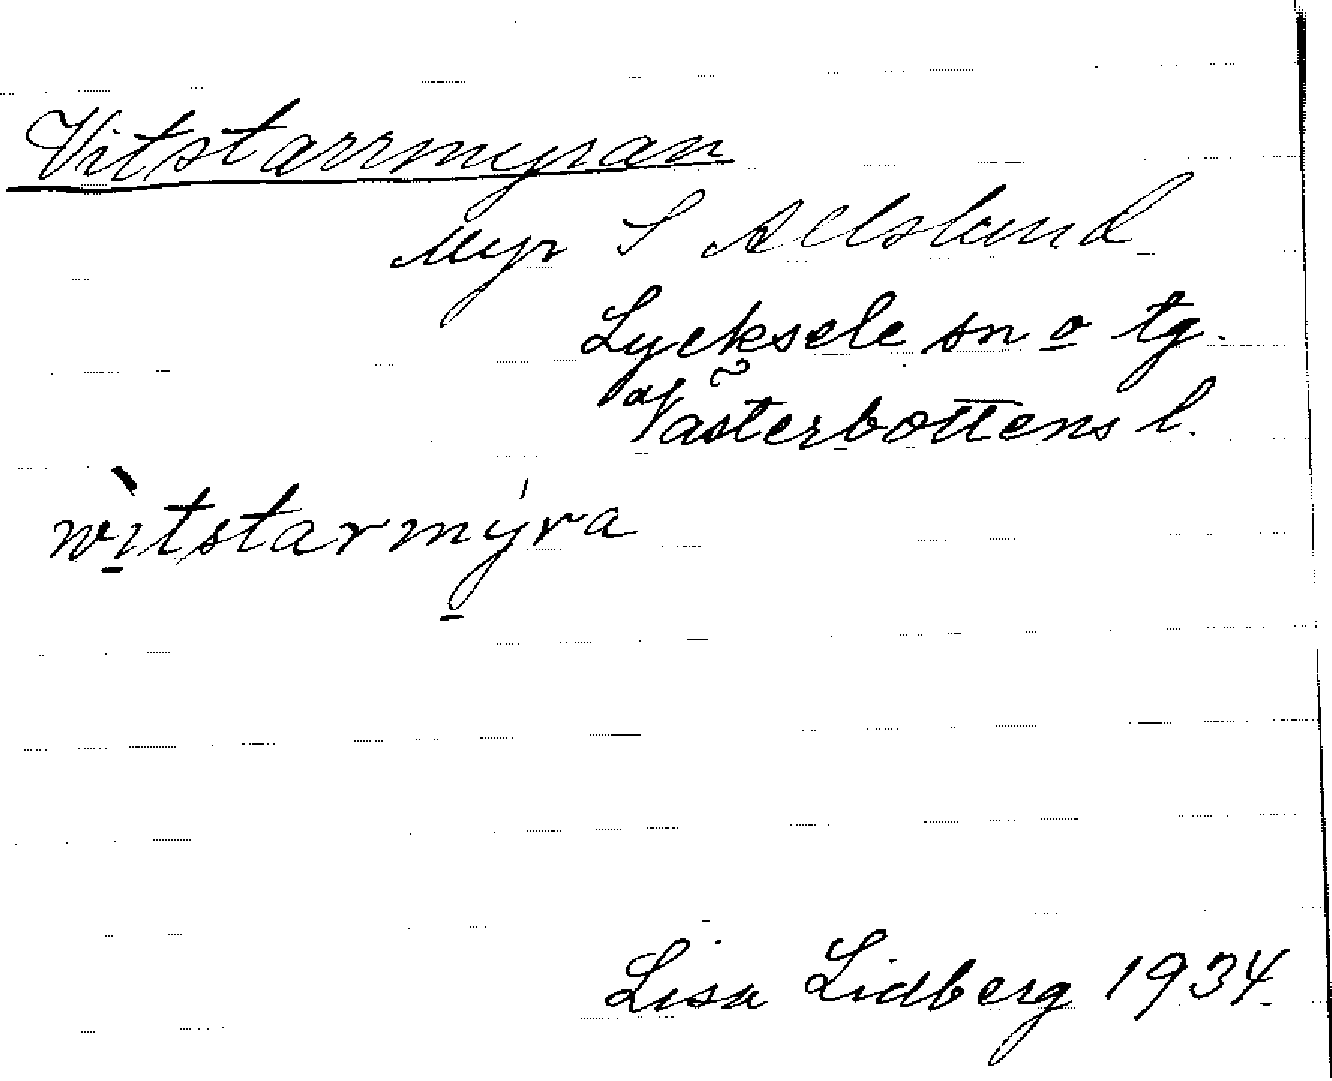 Vitstarrmyran
Myr S Alslund
Lycksele sn o tg.
Västerbottens l.
vìtstarmýra
Lisa Lidberg 1934